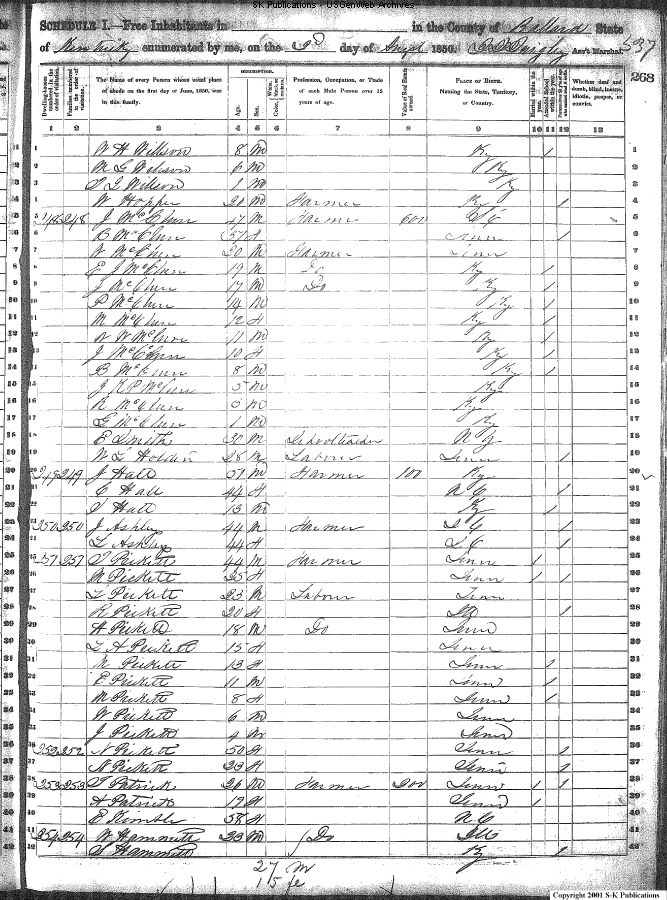 SK Publications - USGenWeb Archives
SCHEDULE I.—Free Inhabitants in in the County of Ballard State
of Kentucky enumerated by me, on the day of 1850. Ass't Marshal. 537
268
Dwelling-houses numbered in the order of visitation.
Families numbered in the order of visitation.
The Name of every Person whose usual place of abode on the first day of June, 1850, was in this family.
DESCRIPTION.
Age.
Sex.
Color, White, black, or mulatto.
Profession, Occupation, or Trade of each Male Person over 15 years of age.
Value of Real Estate owned
Place of Birth. Naming the State, Territory, or Country.
Married within the year.
Attended School within the year.
Whether deaf and dumb, blind, insane, idiotic, pauper, or convict.
1 2 3 4 5 6 7 8 9 10 11 12 13
1 W H Willson 8 M Ky / 1
2 M G Willson 6 M Ky 2
3 Willson 1 M Ky 3
4 W Hopper 20 M Farmer Ky / 4
5 248 J McClure 47 M Farmer 600 5
6 B McClure F Tenn / 6
7 W McClure 20 M Farmer Tenn 7
8 E J McClure 19 M Do Ky / 8
9 J McClure 17 M Do Ky / 9
10 P McClure 14 M Ky / 10
11 M McClure 12 F Ky / 11
12 W McClure 11 M Ky / 12
13 J McClure 10 F Ky / 13
14 B McClure 8 M Ky / 14
15 J K P McClure 5 M Ky 15
16 R McClure M Ky 16
17 G McClure 1 M Ky 17
18 E Smith 30 M Schoolteacher 18
19 W L Holden 28 M Labour Tenn / 19
20 249 249 J Hall 51 M Farmer 100 Ky 20
21 C Hall 44 F N C / 21
22 Hall 13 M Ky / 22
23 250 250 J Ashley 44 M Farmer / 23
24 Ashley 44 F S C / 24
25 251 251 Pickett 44 M Farmer Tenn 1 / 25
26 M Pickett 25 F Tenn 1 / 26
27 Pickett 23 M Labour Tenn 27
28 R Pickett 20 F / 28
29 A Pickett 18 M Do Tenn 29
30 A Pickett 15 F Tenn 30
31 Pickett 13 F Tenn / 31
32 E Pickett 11 M Tenn / 32
33 M Pickett 8 F Tenn / 33
34 W Pickett 6 M Tenn 34
35 J Pickett 4 M Tenn 35
36 252 252 N Pickett 50 F Tenn / 36
37 N Pickett 23 F Tenn / 37
38 253 253 Patrick 26 M Farmer 200 Tenn 1 / 38
39 A Patrick 17 F Tenn 1 39
40 E Kimble 58 F N C 40
41 254 254 W Hammett 23 M Do Ill 41
42 Hammett Ky / 42
27 M
15 fe
Copyright 2001 S-K Publications